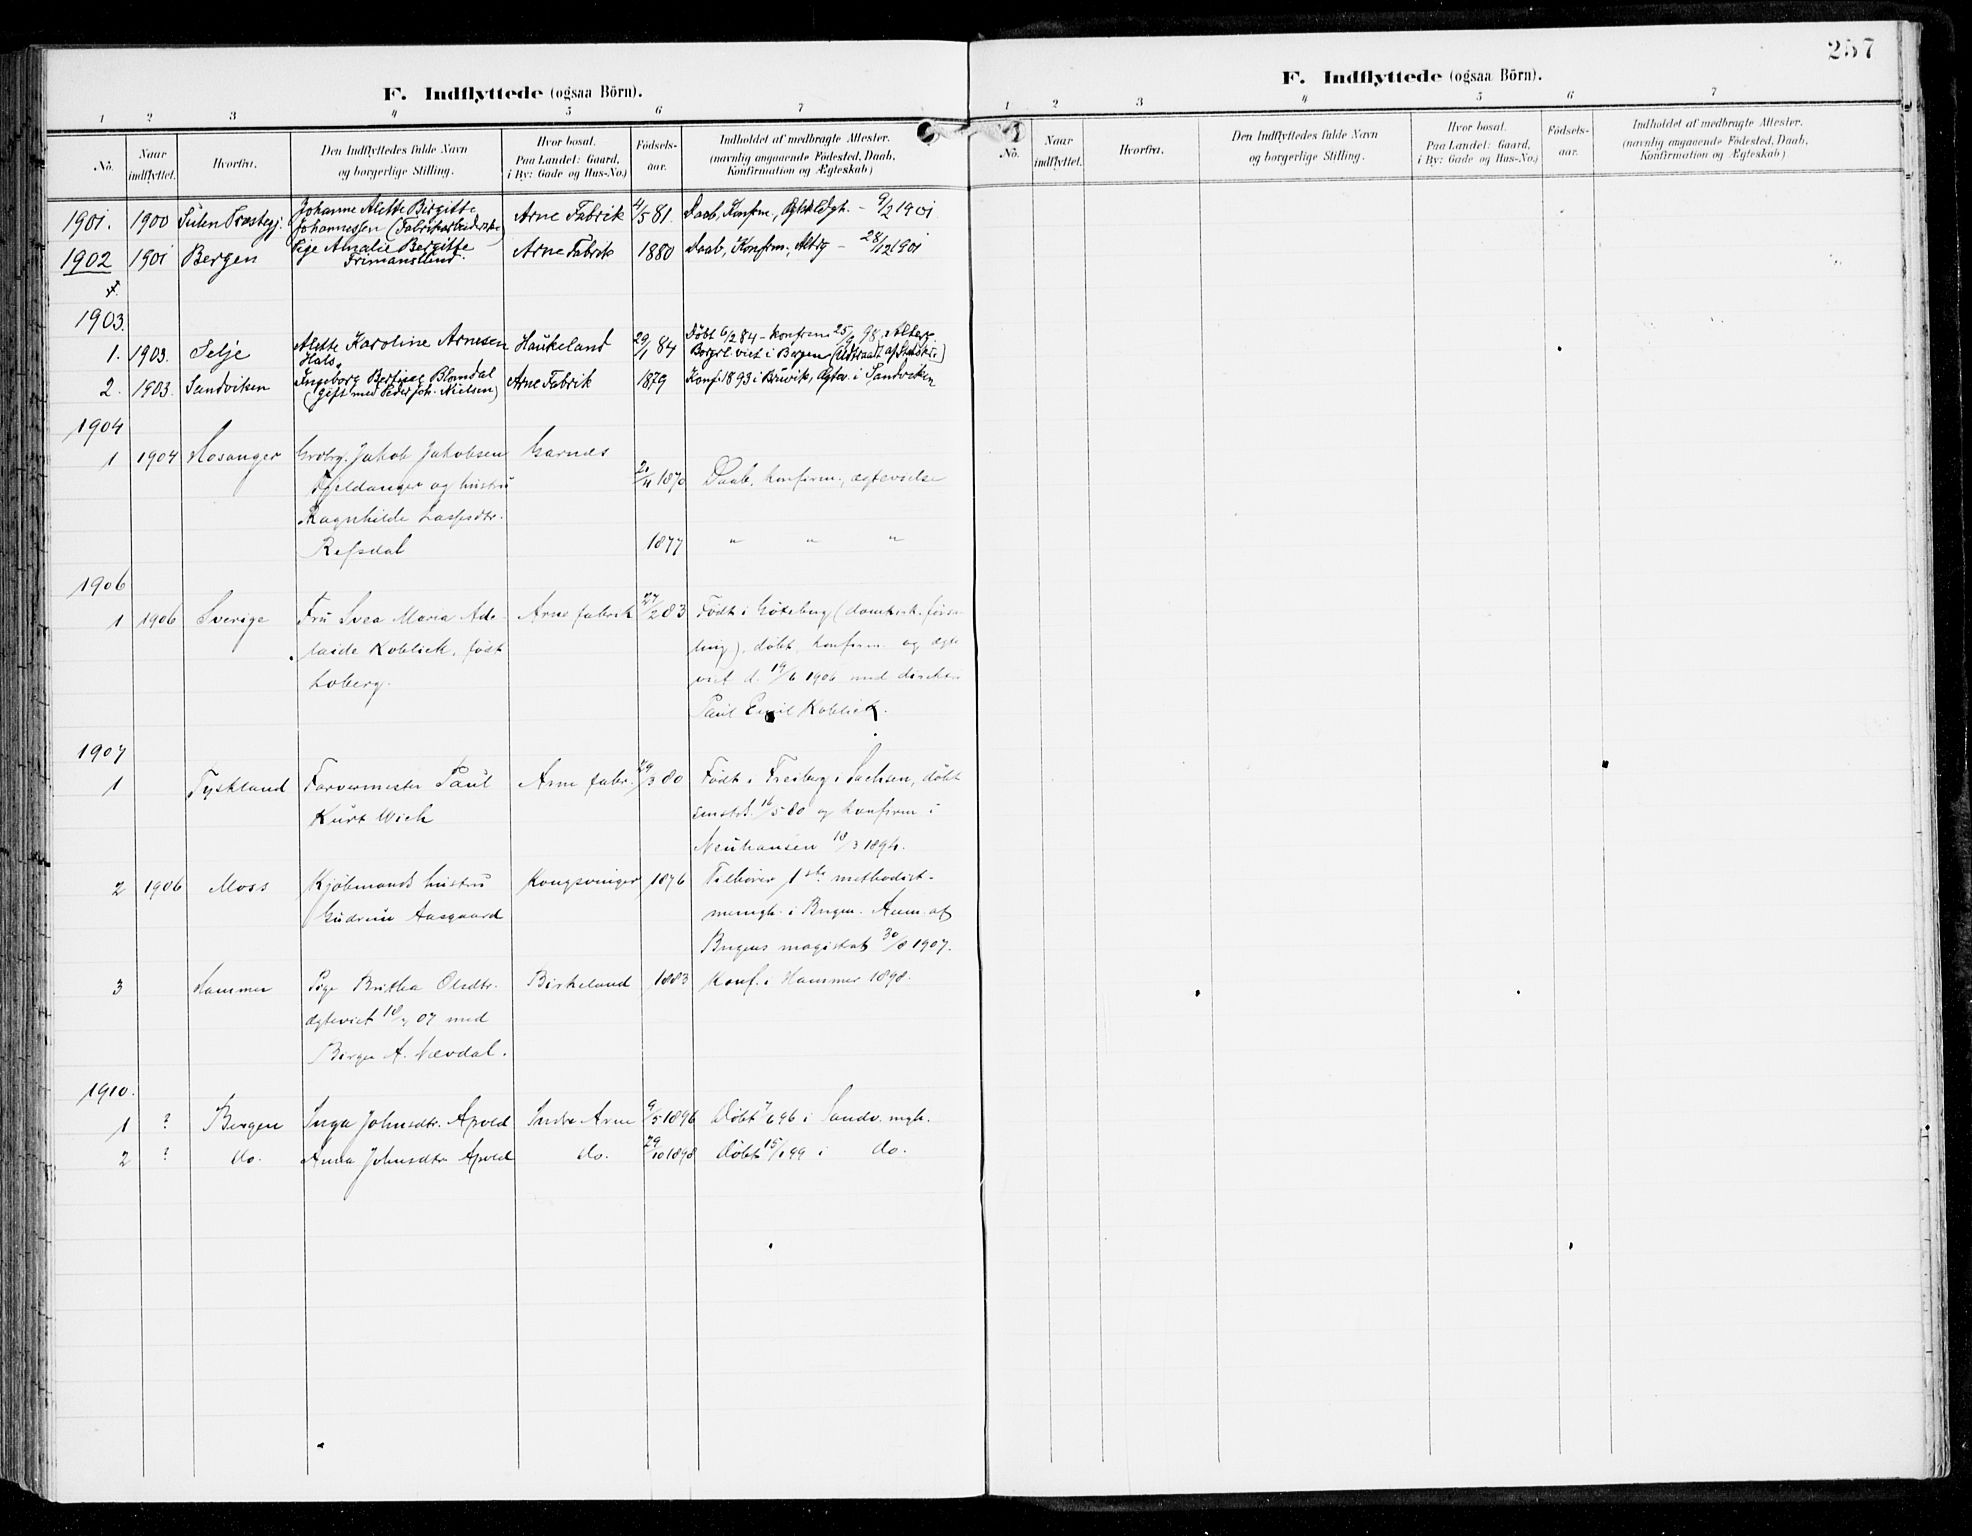 257
F. Indflyttede (ogsaa Börn).
1 2 3 4 5 6 7
No. Naar indflyttet. Hvorfra. Den Indflyttedes fulde Navn og borgerlige Stilling. Hvor bosat. Paa Landet: Gaard, i By: Gade og Hus-No.) Födsels-aar. Indholdet af medbragte Attester. (navnlig angaaende Födested, Daab, Konfirmation og Ægteskab)
1901. 1900 Sulen Præstegj. Johanne Alette Birgitte Arne Fabrik 4/5 81. Daab, Konfirm., - 9/2 1901
Johannessen (Fabrikarbeiderske)
1902 1901 Bergen Pige Amalie Bergitte Arne Fabrik 1880 Daab, Konfirm., - 28/12 1901
Frimanslund.
1903.
1. 1903. Selje Alette Karoline Arnesen Haukeland 29/1 84 Döbt 6/2 84 - konfirm 25/9 98,
Hals. Borgerl. viet i Bergen
2. 1903. Sandviken Ingeborg Blomdal Arne Fabrik 1879 Konf. 1893 i Bruvik, Ægtev. i Sandviken
(gift med Peder Joh. Nielsen)
1904
1 1904 Hosanger Grdbr. Jakob Jakobsen Garnes
Fjeldanger og hustru 20/11 1870 Daab, konfirm., ægtevielse
Ragnhilde Lassesdtr.
Refsdal 1877 " " "
1906
1 1906 Sverige Fru Svea Maria Ade- Arne fabrik 27/2 83 Födt i Göteborg (domkirk. försam-
laide Koblick, födt ling), döbt, konfirm. og ægte
Loberg. viet d. 19/6 1906 med direktör
Paul Emil Koblick.
1907
1 Tyskland Farvermester Paul Arne fabr. 29/3 80 Födt i Freiberg i Sachsen, döbt
Kurt Wich 16/5 80 og konfirm i
Neuhausen 18/3 1894.
2 1906 Moss Kjöbmands hustru Kongsvinger 1876 Tilhörer 1ste methodist-
Gudrun Aasgaard menigh. i Bergen. Anm. af
Bergens magistrat 30/8 1907.
3 Hammer Pige Britha Olsdtr. Birkeland 1883 Konf. i Hammer 1898.
ægteviet 07 med
Birger A. Nævdal.
1910.
1 ? Bergen Inga Johnsdtr. Apold Indre Arne 9/5 1896 Döbt 7/6 96 i Sandv. mgh.
2 ? do. Anna Johnsdtr Apold do. 29/10 1898 Döbt 15/1 99 i do.
F. Indflyttede (ogsaa Börn).
1 2 3 4 5 6 7
No. Naar indflyttet. Hvorfra. Den Indflyttedes fulde Navn og borgerlige Stilling. Hvor bosat. Paa Landet: Gaard, i By: Gade og Hus-No.) Födsels-aar. Indholdet af medbragte Attester. (navnlig angaaende Födested, Daab, Konfirmation og Ægteskab).